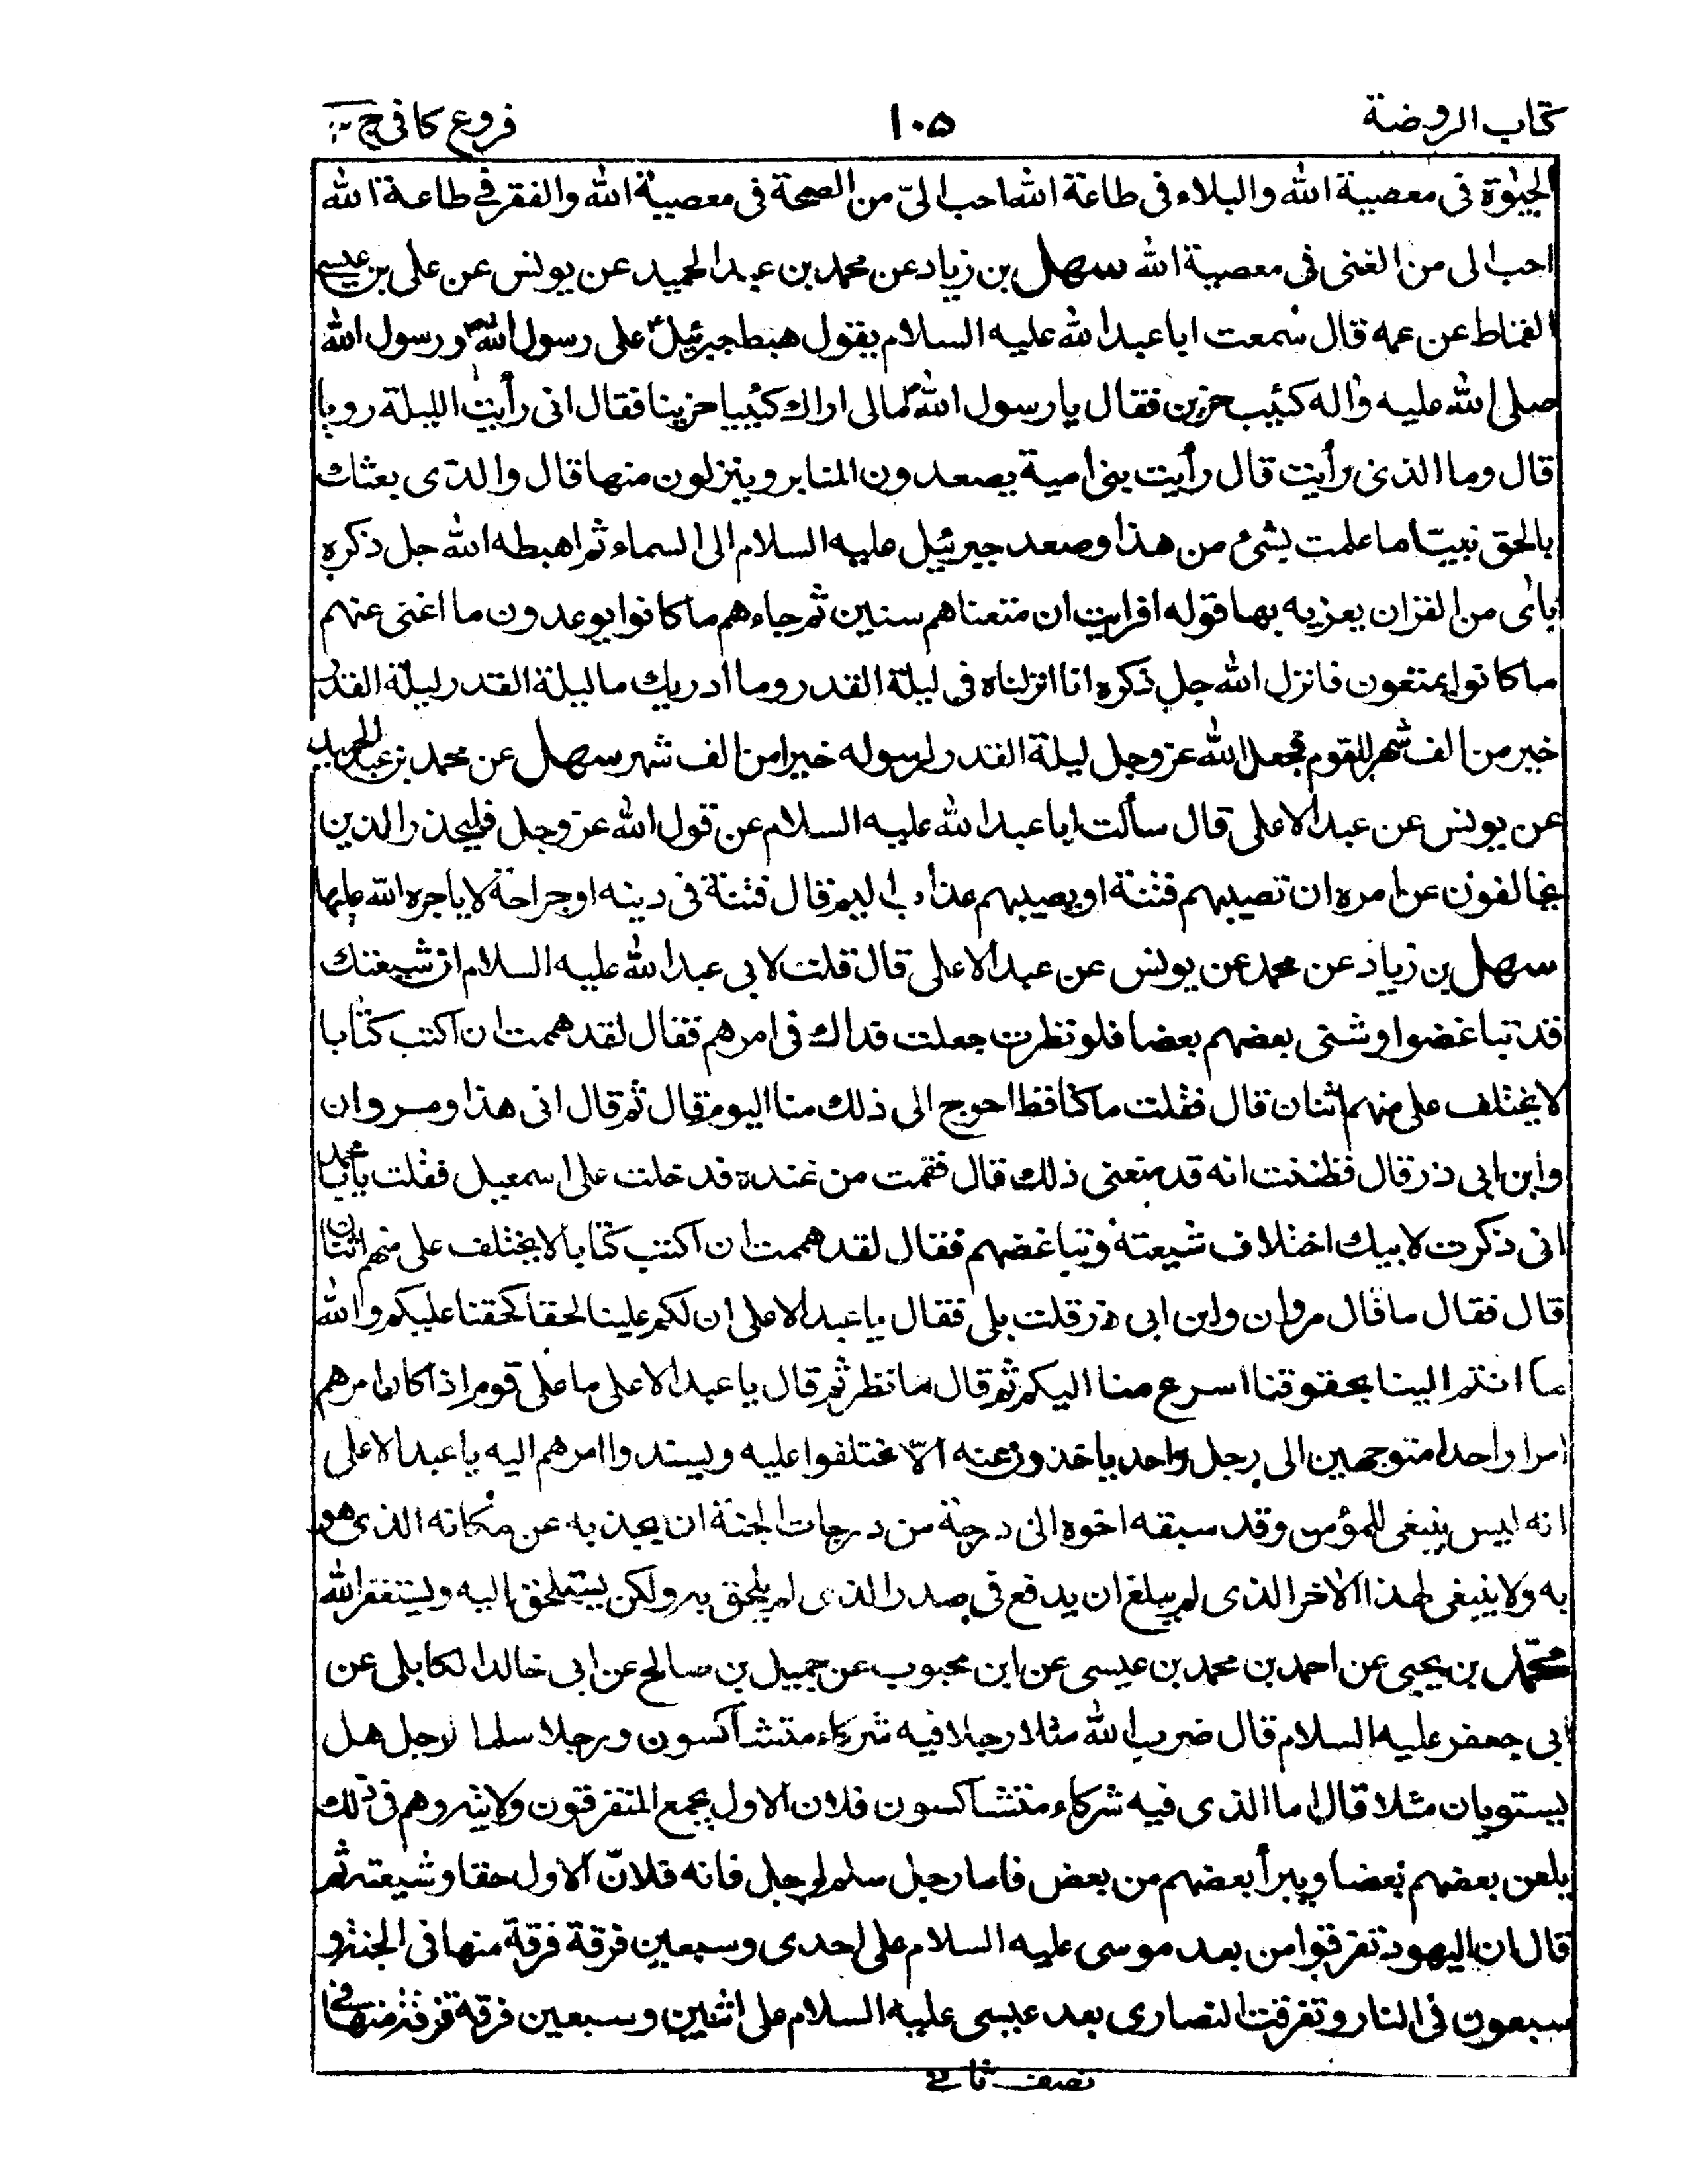 كتاب الروضة
١٠٥
فروع كافى ج
الحيوة فى معصية الله والبلاء فى طاعة الله احب الىّ من الصحة فى معصية الله والفقر فے طاعة الله
احب الى من الغنى فى معصية الله سهل بن زياد عن محمد بن عبد الحميد عن يونس عن على بن عيسى
القماط عن عمه قال سمعت ابا عبد الله عليه السلام يقول هبط جبرئيل ع على رسول الله ص ورسول الله
صلى الله عليه واله كئيب حزين فقال يا رسول الله مالى اراك كئيبا حزينا فقال انى رأيت الليلة رويا
قال وما الذى رأيت قال رأيت بنى امية يصعدون المنابر وينزلون منها قال والذى بعثك
بالحق نبيّا ما علمت بشئ من هذا وصعد جبرئيل عليه السلام الى السماء ثم اهبطه الله جل ذكره
باى من القران يعزيه بها قوله افرايت ان متعناهم سنين ثم جاءهم ما كانوا يوعدون ما اغنى عنهم
ما كانوا يمتعون فانزل الله جل ذكره انا انزلناه فى ليلة القدر وما ادريك ما ليلة القدر ليلة القدر
خير من الف شهر للقوم فجعل الله عز وجل ليلة القدر لرسوله خيرا من الف شهر سهل عن محمد بن عبد الحميد
عن يونس عن عبد الاعلى قال سألت ابا عبد الله عليه السلام عن قول الله عز وجل فليحذر الذين
يخالفون عن امره ان تصيبهم فتنة او يصيبهم عذاب اليم قال فتنة فى دينه او جراحة لا ياجره الله عليها
سهل بن زياد عن محمد عن يونس عن عبد الاعلى قال قلت لابى عبد الله عليه السلام ان شيعتك
قد تباغضوا وشنى بعضهم بعضا فلو نظرت جعلت فداك فى امرهم فقال لقد هممت ان اكتب كتابا
لا يختلف على منهم اثنان قال فقلت ما كنا قط احوج الى ذلك منا اليوم قال ثم قال انى هذا ومروان
وابن ابى ذر قال فظننت انه قد منعنى ذلك قال فقمت من عنده فدخلت على اسمعيل فقلت يا با محمد
انى ذكرت لابيك اختلاف شيعته وتباغضهم فقال لقد هممت ان اكتب كتابا لا يختلف على منهم اثنان
قال فقال ما قال مروان وابن ابى ذر قلت بلى فقال يا عبد الاعلى ان لكم علينا لحقا كحقنا عليكم والله
ما انتم الينا بحقوقنا اسرع منا اليكم ثم قال سانظر ثم قال يا عبد الاعلى ما على قوم اذا كان امرهم
امرا واحدا متوجهين الى رجل واحد ياخذون عنه الّا يختلفوا عليه ويسندوا امرهم اليه يا عبد الاعلى
انه ليس ينبغى للمؤمن وقد سبقه اخوه الى درجة من درجات الجنة ان يجذبه عن مكانه الذى هو
به ولا ينبغى لهذا الاخر الذى لم يبلغ ان يدفع فى صدر الذى لم يلحق به ولكن يستلحق اليه ويستغفر الله
محمد بن يحيى عن احمد بن محمد بن عيسى عن ابن محبوب عن جميل بن صالح عن ابى خالد الكابلى عن
ابى جعفر عليه السلام قال ضرب الله مثلا رجلا فيه شركاء متشاكسون ورجلا سلما لرجل هل
يستويان مثلا قال اما الذى فيه شركاء متشاكسون فلان الاول يجمع المتفرقون ولايته وهم فى ذلك
يلعن بعضهم بعضا ويبرأ بعضهم من بعض فاما رجل سلم لرجل فانه فلانّ الاول حقا وشيعته ثم
قال ان اليهود تفرقوا من بعد موسى عليه السلام على احدى وسبعين فرقة فرقة منها فى الجنة و
سبعون فى النار وتفرقت النصارى بعد عيسى عليه السلام على اثنين وسبعين فرقة فرقة منها فے
نصف ثانے